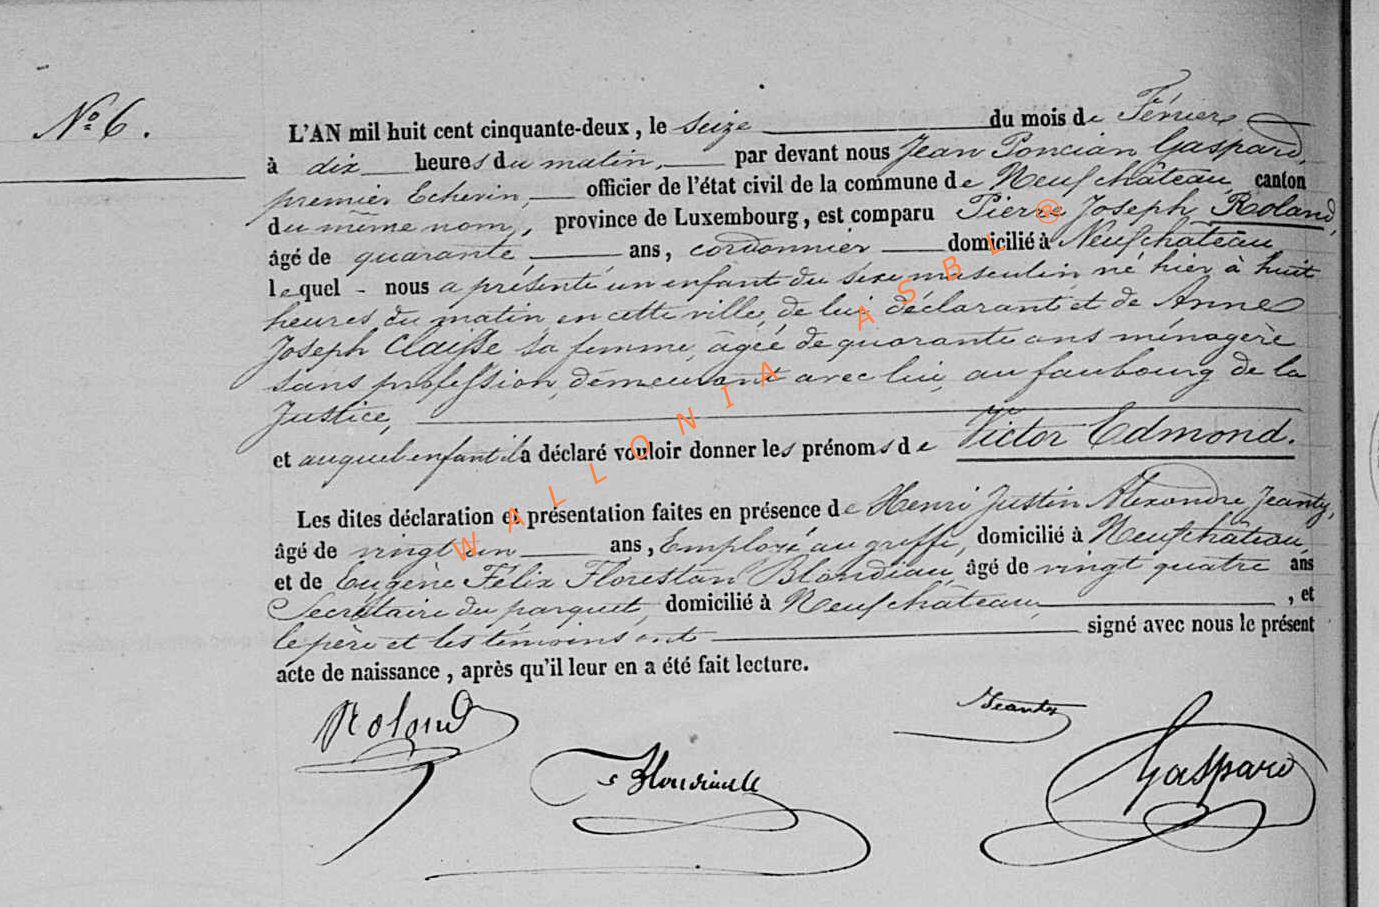 Nº 6.
L'AN mil huit cent cinquante-deux, le Seize du mois de Février
à dix heures du matin, par devant nous Jean Poncian Gaspard,
premier Echevin, officier de l'état civil de la commune de Neufchâteau, canton
du même nom, province de Luxembourg, est comparu Pierre Joseph Roland,
âgé de quarante, ans, cordonnier domicilié à Neufchâteau,
lequel - nous a présenté un enfant du sexe masculin, né hier à huit
heures du matin, en cette ville, de lui déclarant et de Anne
Joseph Claisse sa femme, âgée de quarante ans ménagère
sans profession, demeurant avec lui, au faubourg de la
Justice,
et auquel enfant il a déclaré vouloir donner les prénoms de Victor Edmond.
Les dites déclaration et présentation faites en présence de Henri Justin Alexandre Jeanty,
âgé de vingt un ans, Employé au greffe, domicilié à Neufchâteau,
et de Eugène Félix Florestan Blondiau, âgé de vingt quatre ans
Secrétaire du parquet, domicilié à Neufchateau, , et
le père et les témoins ont signé avec nous le présent
acte de naissance, après qu'il leur en a été fait lecture.
Roland
Jeanty
Gaspard
WALLONIA ASBL ®